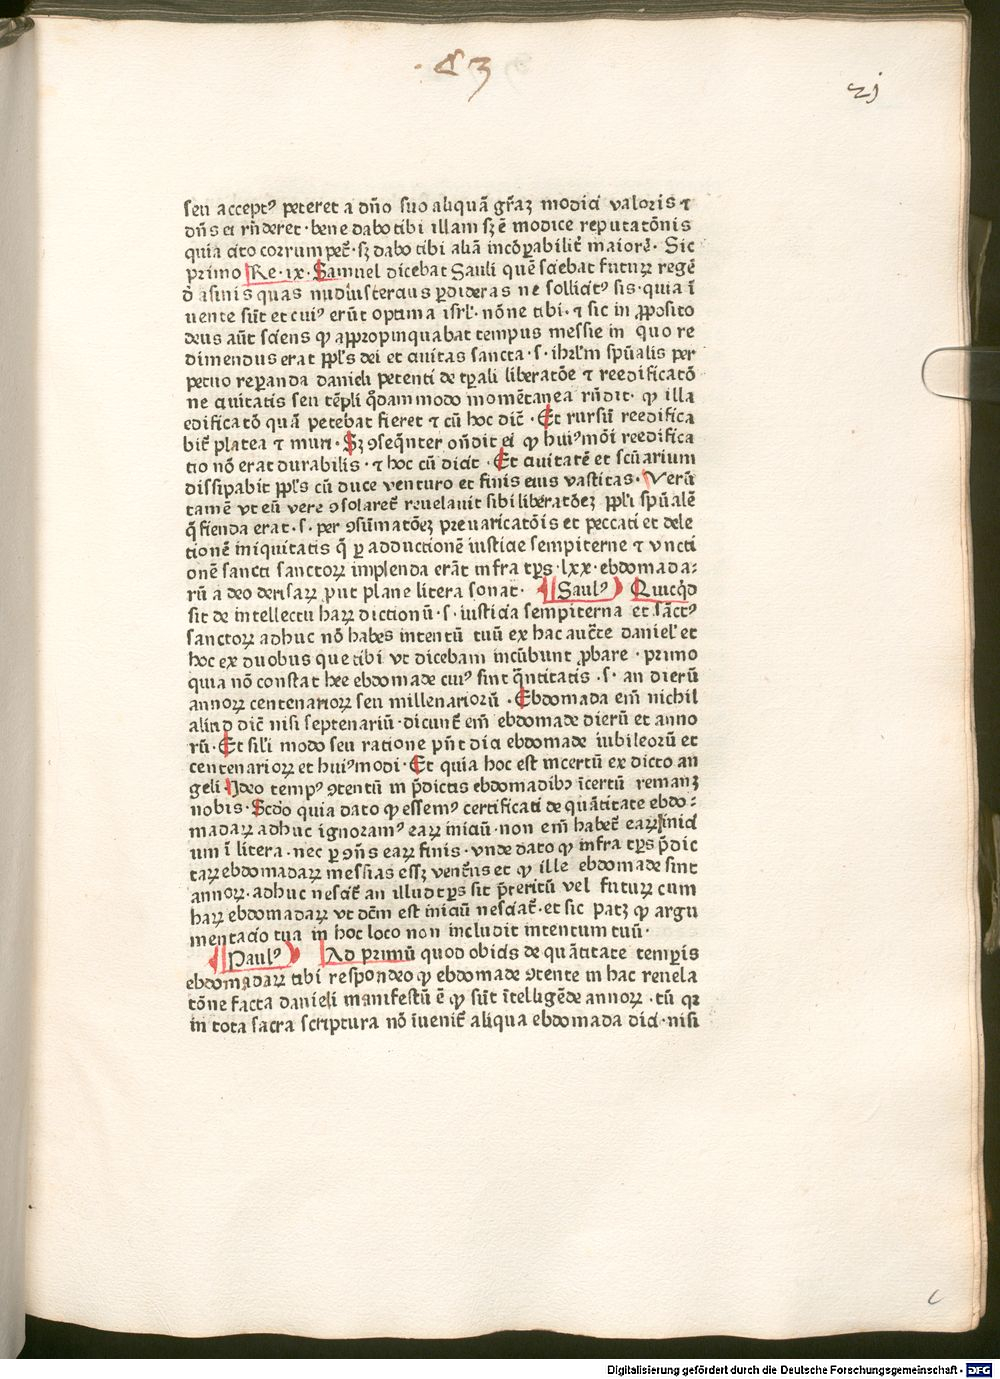 seu accept⁹ peteret a dño suo aliquã gr̃aȝ modici valoris ⁊
dñs ei rñderet · bene dabo tibi illam sȝ ẽ modice reputatõnis
quia cito corrumpet̃ · sȝ dabo tibi aliã incõpabilit̃ maiorẽ · Sic
primo Re · ix · Samuel dicebat Sauli quẽ sciebat futurꝝ regẽ
õ asinis quas nudiusterci⁹ ꝑdideras ne sollicit⁹ sis · quia ĩ
uente sũt et cui⁹ erũt optima isrl̃ · nõne tibi · ⁊ sic in ꝓposito
deus aũt sciens ꝙ appropinquabat tempus messie in quo re
dimendus erat ppl̃s dei et ciuitas sancta · s · ihrl̃m spũalis per
petuo reꝑanda danieli petenti de tꝑali liberatõe ⁊ reedificatõ
ne ciuitatis seu tẽpli q̃dammodo momẽtanea rñdit · ꝙ illa
edificatõ quã petebat fieret ⁊ cũ hoc dic̃ · Et rursũ reedifica
bit̃ platea ⁊ muri · Sȝ ꝯseq̃nter oñdit ei ꝙ hui⁹mõi reedifica
tio nõ erat durabilis · ⁊ hoc cũ dicit · Et ciuitatẽ et scũarium
dissipabit ppl̃s cũ duce venturo et finis eius vastitas · Verũ
tamẽ vt eũ vere ꝯsolaret̃ reuelauit sibi liberatõeȝ ppl̃i spũalẽ
q̃ fienda erat · s · per ꝯsũmatõeȝ preuaricatõis et peccati et dele
tionẽ iniquitatis q̃ ꝑ adductionẽ iusticie sempiterne ⁊ vncti
onẽ sancti sanctorꝝ implenda erãt infra tꝑs · lxx · ebdomada⸗
rũ a deo decisarꝝ ꝓut plane litera sonat · Saul⁹ Quicq̃d
sit de intellectu harꝝ dictionũ · s · iusticia sempiterna et sãct⁹
sanctorꝝ adhuc nõ habes intentũ tuũ ex hac auct̃e daniel̃ et
hoc ex duobus que tibi vt dicebam incũbunt ꝓbare · primo
quia nõ constat hee ebdomade cui⁹ sint q̃ntitatis · s · an dierũ
annorꝝ centenariorꝝ seu millenariorũ · Ebdomada em̃ nichil
aliud dic̃ nisi septenariũ · dicunt̃ em̃ ebdomade dierũ et anno
rũ · Et sil̃i modo seu ratione pñt dici ebdomade iubileorũ et
centenariorꝝ et hui⁹modi · Et quia hoc est incertũ ex dicto an
geli · Ideo temp⁹ ꝯtentũ in p̃dictis ebdomadibȝ ĩcertũ remanȝ
nobis · Scdõ quia dato ꝙ essem⁹ certificati de quãtitate ebdo⸗
madarꝝ adhuc ignoram⁹ earꝝ iniciũ · non em̃ habet̃ earꝝ inici
um ĩ litera · nec ꝑ ꝯñs earꝝ finis · vnde dato ꝙ infra tꝑs p̃dic
tarꝝ ebdomadarꝝ messias essȝ vent̃us et ꝙ ille ebdomade sint
annorꝝ · adhuc nescit̃ an illud tꝑs sit p̃teritũ vel futurꝝ cum
harꝝ ebdomadarꝝ vt dc̃m est iniciũ nesciat̃ · et sic patȝ ꝙ argu
mentacio tua in hoc loco non includit intentum tuũ ·
Paul⁹ Ad primũ quod obicis de quãtitate temꝑis
ebdomadarꝝ tibi respondeo ꝙ ebdomade ꝯtente in hac reuela
tõne facta danieli manifestũ ẽ ꝙ sũt ĩtelligẽde annorꝝ · tũ qꝛ
in tota sacra scriptura nõ ĩuenit̃ aliqua ebdomada dici · nisi
Digitalisierung gefördert durch die Deutsche Forschungsgemeinschaft - DFG